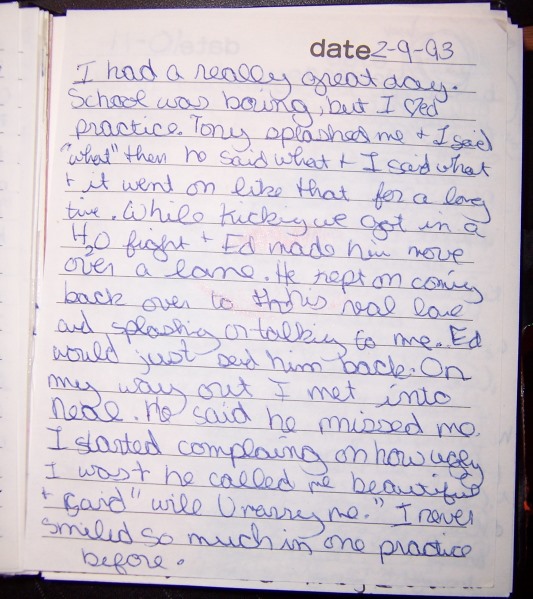 date 2-9-93
I had a really great day.
School was boring, but I ♡ed
practice. Tony splashed me + I said
"what" then he said what + I said what
+ it went on like that for a long
time. While kicking we got in a
H2O fight + Ed made him move
over a lane. He kept on coming
back over to this real lane
and splashing or talking to me. Ed
would just send him back. On
my way out I met into
Neale. He said he missed me.
I started complaing on how ugly
I was + he called me beautiful
+ said "will U marry me." I never
smiled so much in one practice
before.